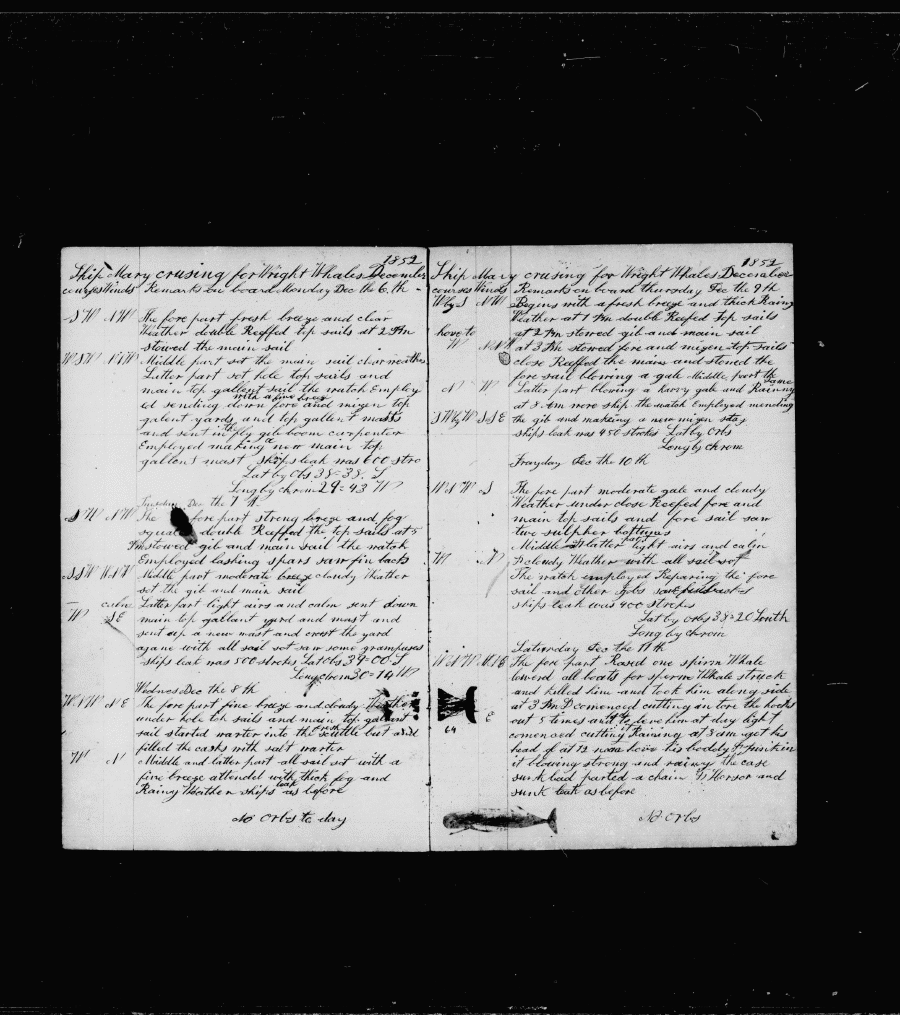 1852
Ship Mary crusing for Wright Whales December
courses Winds Remarks on board Monday Dec the 6.th
SW NW The fore part fresh breeze and clear
Weather double Reeffed top sails at 2 Pm
stowed the main sail
WSW NNW Middle part sot the main sail clear weather
Latter part sot hole top sails and
main top gallent sail the watch Employ
with a fine breeze
ed sending down fore and mizen top
galent yards and top gallent masts
and sent in the fly gib boom carpenter
Employed making a new main top
gallent mast ships leak was 600 stro
Lat by Obs 38=38. S
Long by chrom 29=43 W
Tuesday Dec the 7 th
SW NW The fore part strong breeze and fog
squalls double Reeffed the top sails at 5
Pm stowed gib and main sail the watch
Employed lashing spars saw fin backs
SSW WNW Middle part moderate breeze cloudy Weather
sot the gib and main sail
calm Latter part light airs and calm sent down
W SE main top gallant yard and mast and
sent up a new mast and crost the yard
agane with all sail sot saw some grampuses
ships leak was 500 strokes Lat Obs 39=00. S
Long chrom 30=14 W
Wednes Dec the 8 th
WNW NE The fore part fine breeze and cloudy Weather
under hole top sails and main top galent
sail started warter into the scuttle but and
filled the casks with salt warter
W N Middle and latter part all sail sot with a
fine breeze attended with thick fog and
leak
Rainy Weather ships as before
No Orbs to day
1852
Ship Mary crusing for Wright Whales December
courses Winds Remarks on board Thursday Dec the 9th
W by S NW Begins with a fresh breeze and thick Rainy
Weather at 1 Pm double Reefed top sails
hove to at 2 Pm stowed gib and main sail
W NNW at 3 Pm stowed fore and mizen top sails
close Reeffed the main and stowed the
fore sail blowing a gale Middle part the same
N W Latter part blowing a harvy gale and Rainny
at 3 Am wore ship the watch Employed mending
SW by W SSE the gib and making a new mizen stay
ships leak was 450 strokes Lat by Orbs
Long by chrom
Frayday Dec the 10th
WNW S The fore part moderate gale and cloudy
Weather under close Reefed fore and
main top sails and fore sail saw
two sulpher bottums
Middle & latter part light airs and calm
W N & cloudy Weather with all sail sot
The watch employed Reparing the fore
sail and other gibs
ships leak was 400 strokes
Lat by Orbs 38=20 South
Long by chrom
Saturday Dec the 11th
WNW NNE The fore part Rased one spirm Whale
lowerd all boats for sperm Whale struck
and killed him and took him along side
at 3 Pm comenced cutting in tore the hook
E out 5 times and to leve him at day light
64 comenced cutting Raining at 3 am got his
head of at 12 noon hove his bodely & junk in
it blowing strong and rainy the case
sunk had parted a chain N Horsor and
sunk leak as before
No Orbs